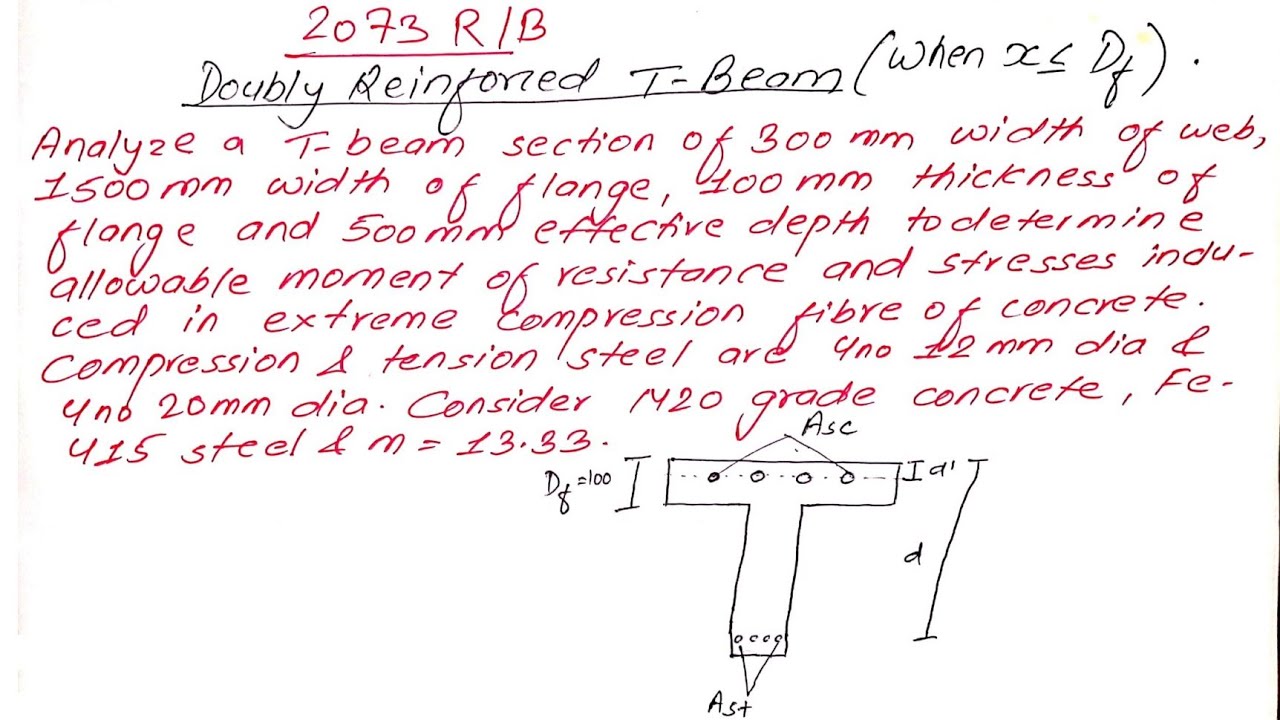 2073 R/B
Doubly Reinforced T-Beam (When x ≤ Df).
Analyze a T-beam section of 300 mm width of web,
1500 mm width of flange, 100 mm thickness of
flange and 500 mm effective depth to determine
allowable moment of resistance and stresses indu-
ced in extreme compression fibre of concrete.
Compression & tension steel are 4no 12 mm dia &
4no 20mm dia. Consider M20 grade concrete, Fe-
415 steel & m = 13.33.
Asc
Df=100
d'
d
Ast